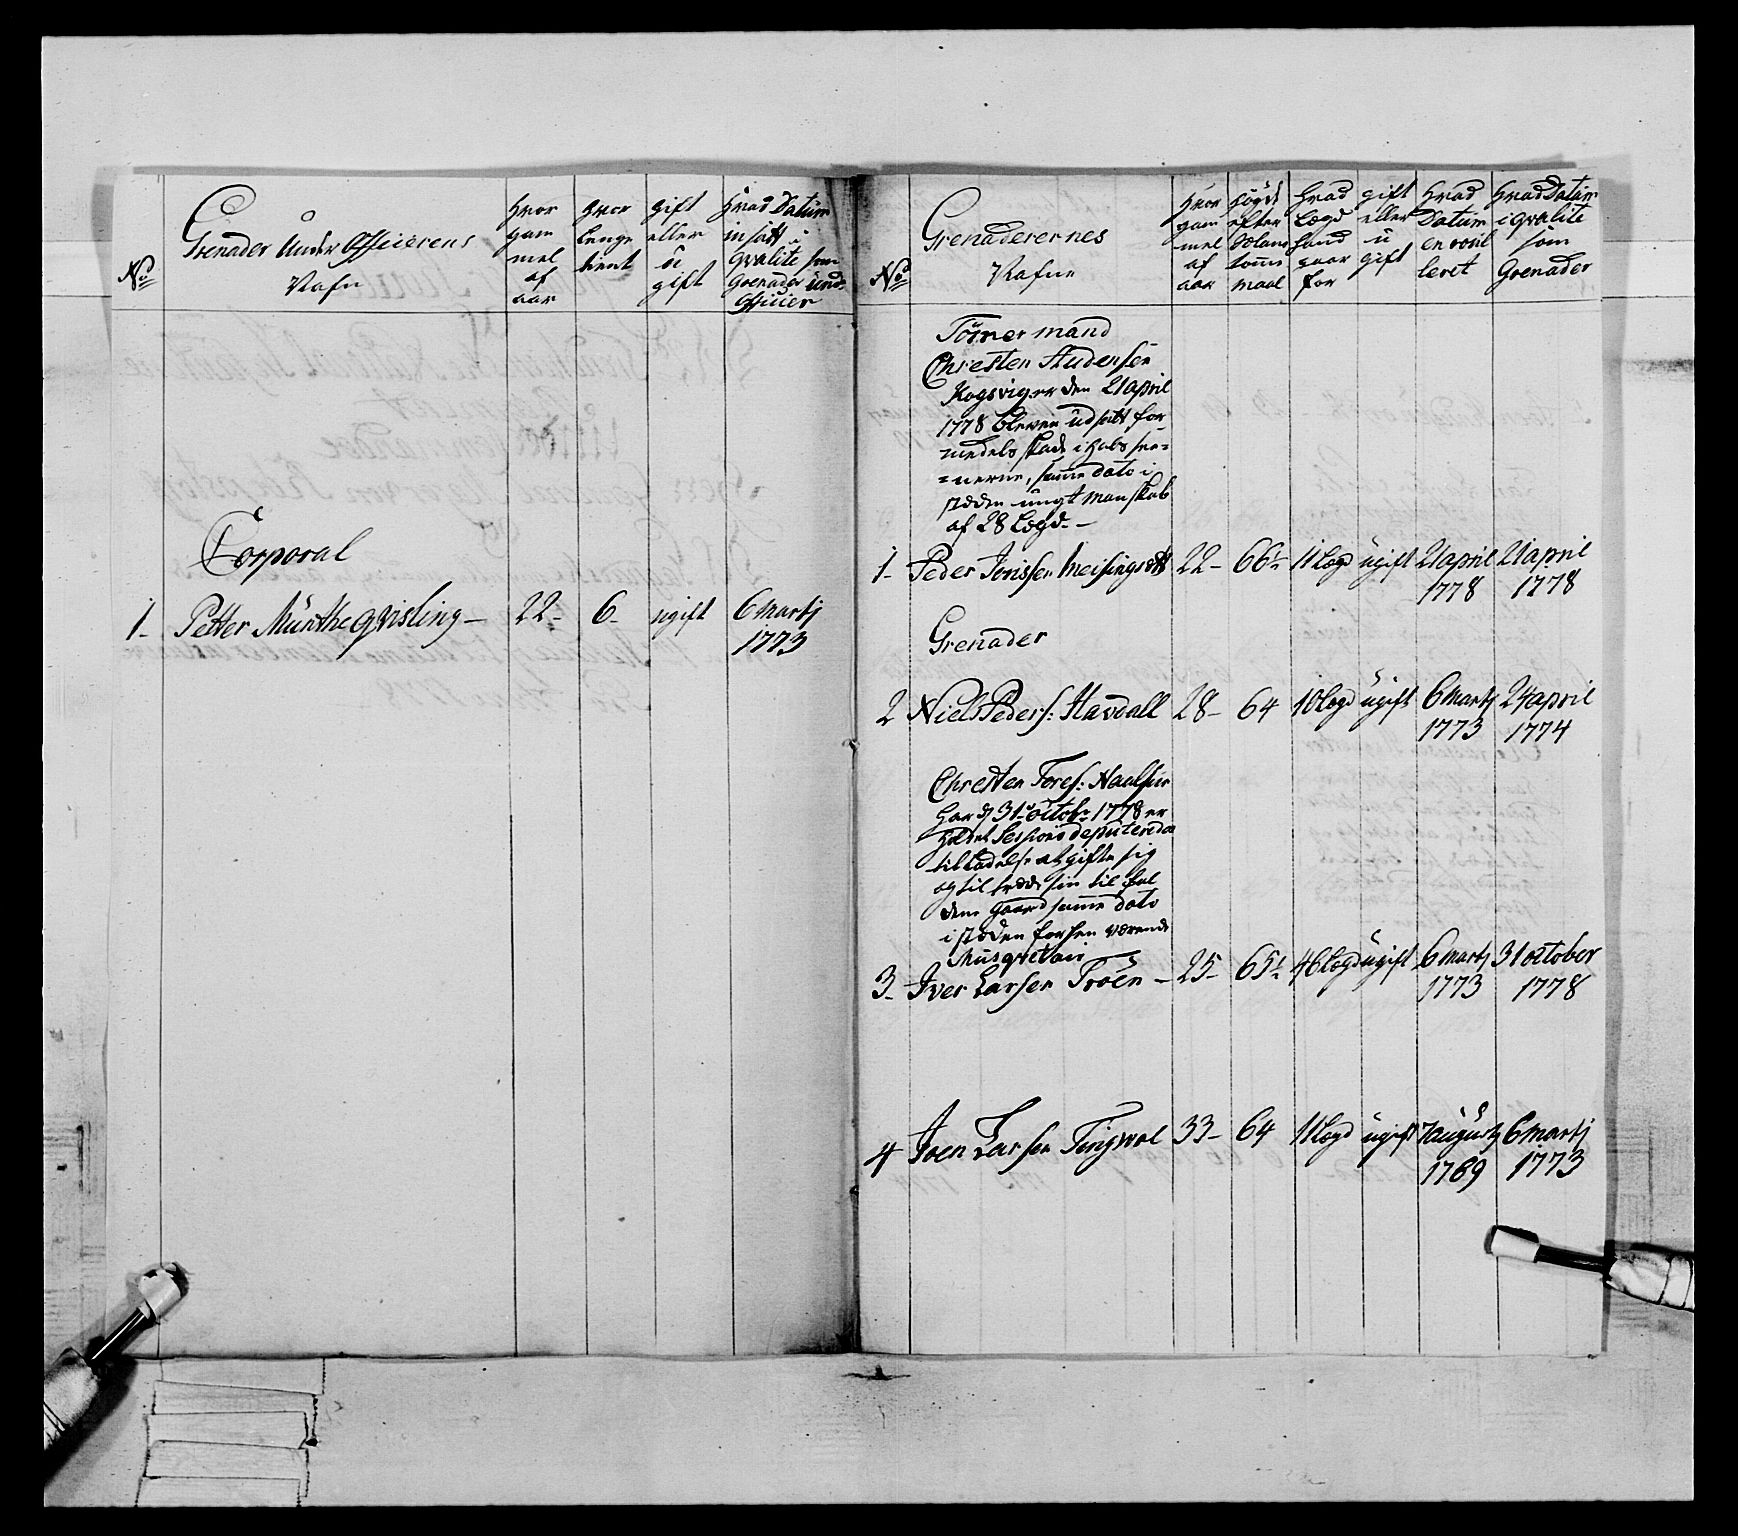 No
Grenader Under Officierens
Nafn
hvor
gam
mel
af
aar
hvor
lenge
tient
gift
eller
u
gift
hvad Datum
insatt i
qvalite som
Grenader Und.
Officier
Corporal
1- Petter Münthe Qvisling - 22- 6- ugift 6 Martj
1773
No
Grenaderernes
Nafne
hvor
gam
mel
af
aar
högde
efter
Soland
tomme
maal
hvad
Lægd
hand
staar
for
gift
eller
u
gift
hvad
Datum
enroul
leret
hvad Datum
i qvalite
som
Grenader
Tömermand
Chresten Andersen
Kogsvig er den 21 april
1778 bleven udsatt for
medelst skade i
nerne, samme dato i
stæden ungt Manskab
af 28 Lægd. -
1- Peder Jonsen Meisingsætt 22- 66½ 11 Lægd ugift 21 april 21 april
1778 1778
Grenader
2 Niels Peders: Havdall 28- 64 10 Lægd ugift 6 Martj 24 april
1773 1774
Chresten Tores:
har d 31 octobr 1778 er
holdet Sessions deputerede
tilladelse at gifte sig
og til træde sin til fal
dene gaard samme dato
i stæden forhen værende
Musqvetair
3- Iver Larsen Tröen - 25- 65½ 46 Lægd ugift 6 Martj 31 october
1773 1778
4 Joen Larsen Tingvol 33- 64 11 Lægd ugift 7 augustj 6 martj
1769 1773